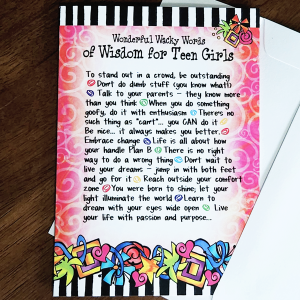 Wonderful Wacky Words
of Wisdom for Teen Girls
To stand out in a crowd, be outstanding
Don't do dumb stuff (you know what!)
Talk to your parents - they know more
than you think When you do something
goofy, do it with enthusiasm There's no
such thing as "can't"... you CAN do it
Be nice... it always makes you better.
Embrace change Life is all about how
your handle Plan B There is no right
way to do a wrong thing Don't wait to
live your dreams - jump in with both feet
and go for it Reach outside your comfort
zone You were born to shine; let your
light illuminate the world Learn to
dream with your eyes wide open Live
your life with passion and purpose...